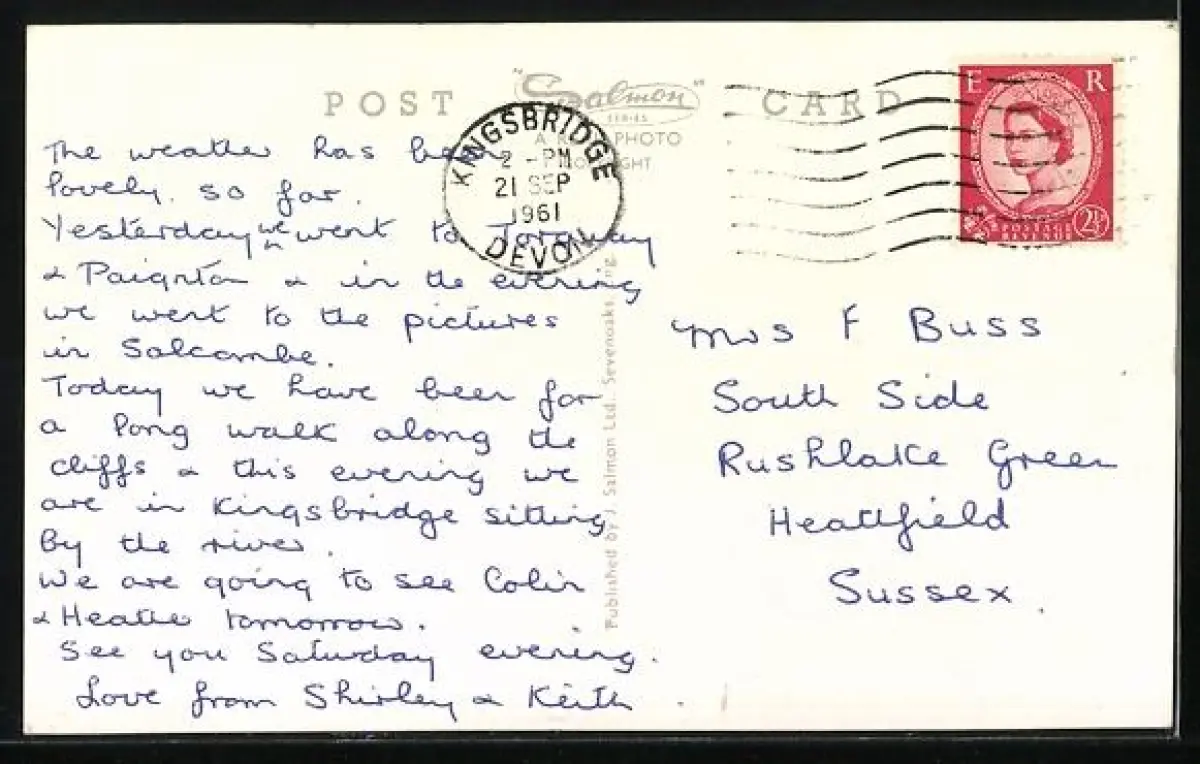 POST CARD
"Salmon"
SERIES
PHOTO
KINGSBRIDGE
2 - PM
21 SEP
1961
DEVON
E R
POSTAGE
REVENUE
2½
The weather has been
lovely so far.
Yesterday we went to Torquay
& Paignton & in the evening
we went to the pictures
in Salcombe.
Today we have been for
a long walk along the
cliffs & this evening we
are in Kingsbridge sitting
by the river.
We are going to see Colin
& Heather tomorrow.
See you Saturday evening.
Love from Shirley & Keith
Published by J. Salmon Ltd. Sevenoaks
Mrs F Buss
South Side
Rushlake Green
Heathfield
Sussex